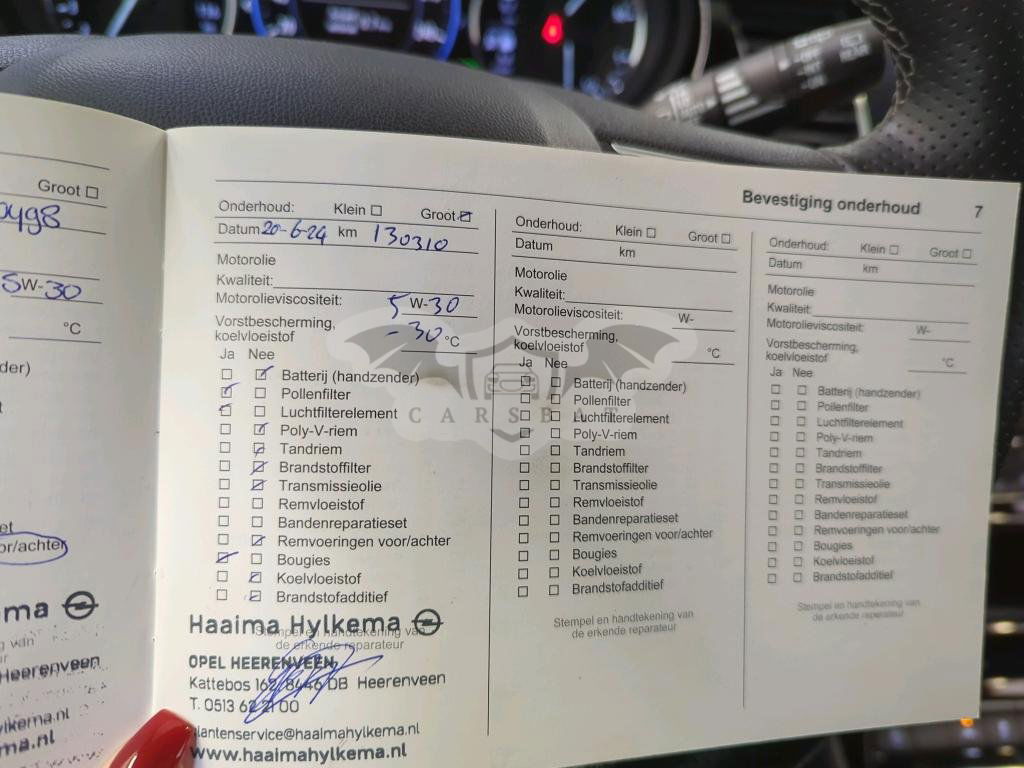 Bevestiging onderhoud 7
Groot
0498
5W-30
°C
der)
t
et
or/achter
ma
g van
ur
Heerenveen
ylkema.nl
ma.nl
Onderhoud: Klein Groot
Datum 20-6-24 km 130310
Motorolie
Kwaliteit:
Motorolieviscositeit: 5 W-30
Vorstbescherming,
koelvloeistof -30 °C
Ja Nee
Batterij (handzender)
Pollenfilter
Luchtfilterelement
Poly-V-riem
Tandriem
Brandstoffilter
Transmissieolie
Remvloeistof
Bandenreparatieset
Remvoeringen voor/achter
Bougies
Koelvloeistof
Brandstofadditief
Haaima Hylkema
Stempel en handtekening van
de erkende reparateur
OPEL HEERENVEEN
Kattebos 162 8446 DB Heerenveen
T. 0513 62 21 00
klantenservice@haaimahylkema.nl
www.haaimahylkema.nl
Onderhoud: Klein Groot
Datum km
Motorolie
Kwaliteit:
Motorolieviscositeit: W-
Vorstbescherming,
koelvloeistof °C
Ja Nee
Batterij (handzender)
Pollenfilter
Luchtfilterelement
Poly-V-riem
Tandriem
Brandstoffilter
Transmissieolie
Remvloeistof
Bandenreparatieset
Remvoeringen voor/achter
Bougies
Koelvloeistof
Brandstofadditief
Stempel en handtekening van
de erkende reparateur
Onderhoud: Klein Groot
Datum km
Motorolie
Kwaliteit:
Motorolieviscositeit: W-
Vorstbescherming,
koelvloeistof °C
Ja Nee
Batterij (handzender)
Pollenfilter
Luchtfilterelement
Poly-V-riem
Tandriem
Brandstoffilter
Transmissieolie
Remvloeistof
Bandenreparatieset
Remvoeringen voor/achter
Bougies
Koelvloeistof
Brandstofadditief
Stempel en handtekening van
de erkende reparateur
CARSBAT